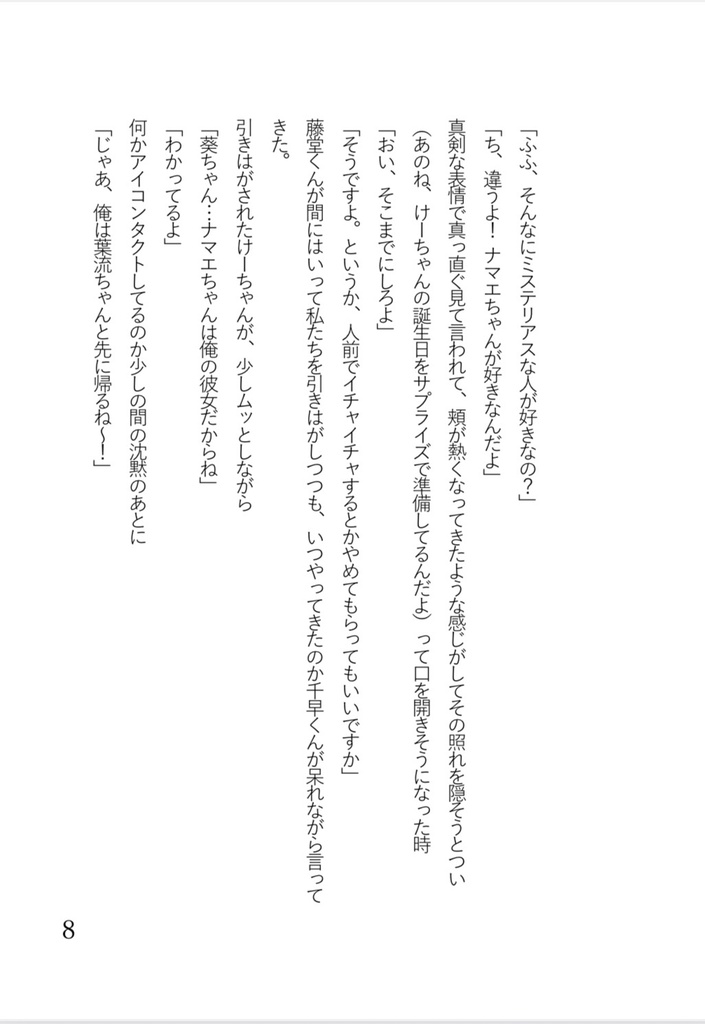 「ふふ、そんなにミステリアスな人が好きなの？」
「ち、違うよ！ ナマエちゃんが好きなんだよ」
真剣な表情で真っ直ぐ見て言われて、頬が熱くなってきたような感じがしてその照れを隠そうとつい
（あのね、けーちゃんの誕生日をサプライズで準備してるんだよ）って口を開きそうになった時
「おい、そこまでにしろよ」
「そうですよ。というか、人前でイチャイチャするとかやめてもらってもいいですか」
藤堂くんが間にはいって私たちを引きはがしつつも、いつやってきたのか千早くんが呆れながら言って
きた。
引きはがされたけーちゃんが、少しムッとしながら
「葵ちゃん…ナマエちゃんは俺の彼女だからね」
「わかってるよ」
何かアイコンタクトしてるのか少しの間の沈黙のあとに
「じゃあ、俺は葉流ちゃんと先に帰るね〜！」
8